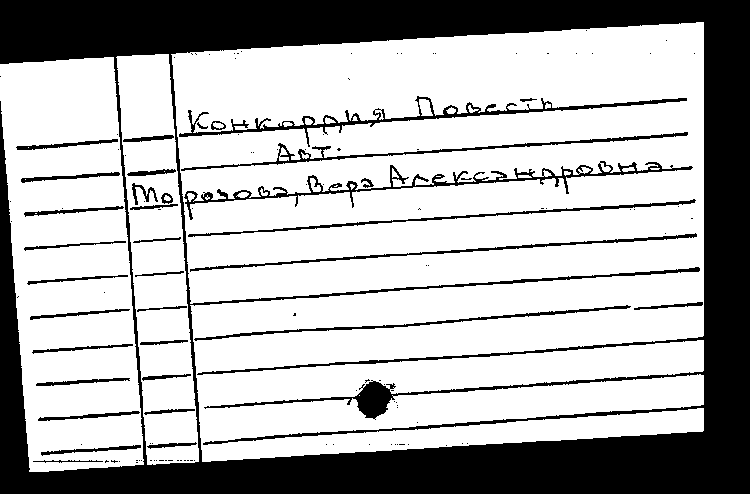 Конкордия Повесть
Авт.
Морозова, Вера Александровна.